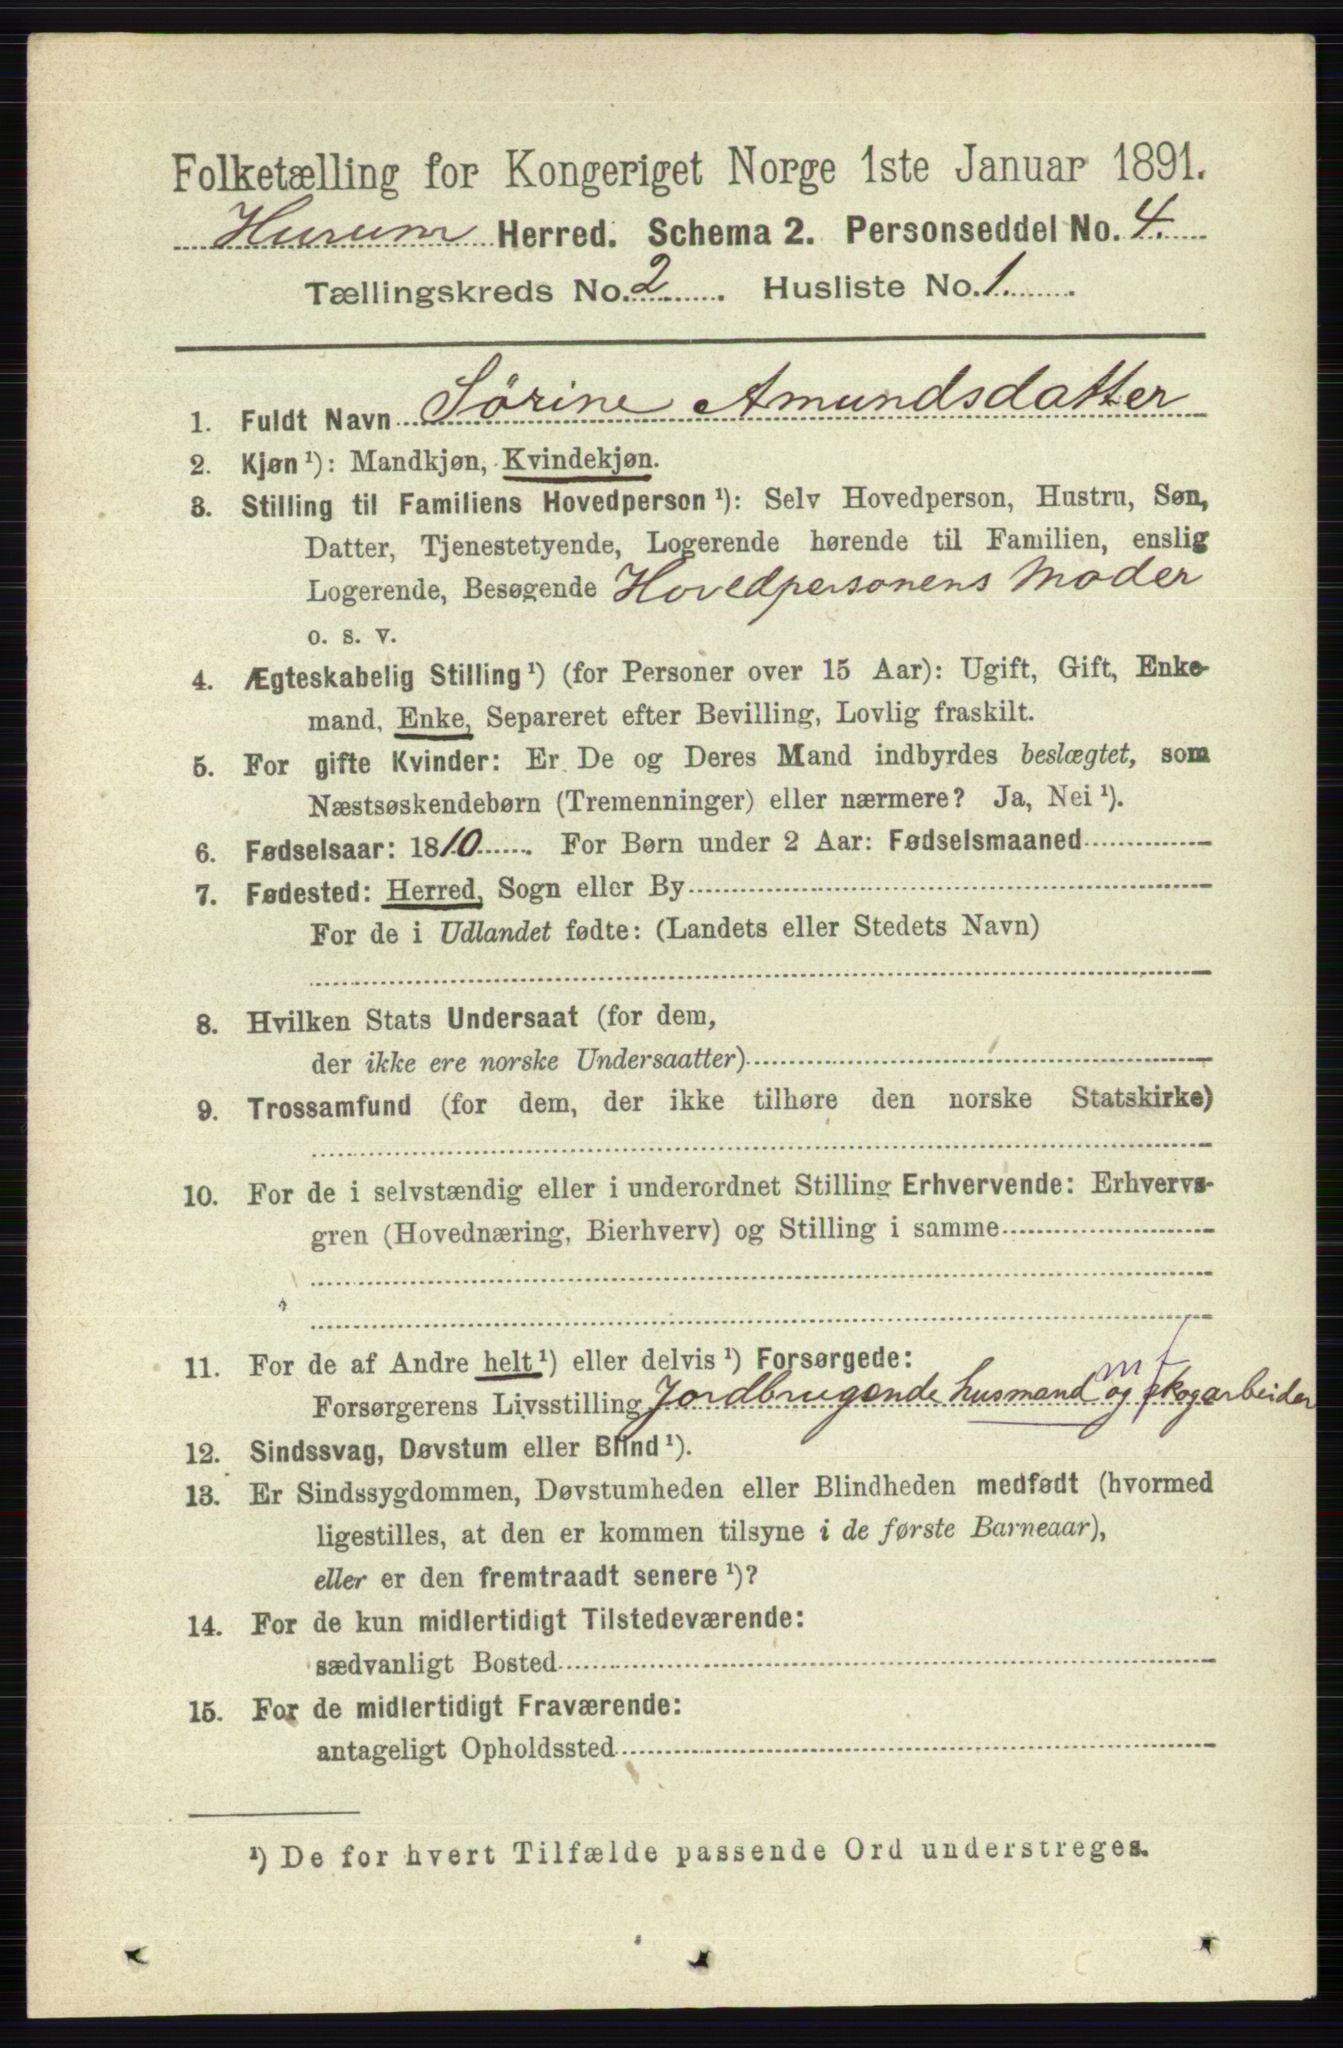 Folketælling for Kongeriget Norge 1ste Januar 1891.
Hurum Herred. Schema 2. Personseddel No. 4.
Tællingskreds No. 2 . Husliste No. 1. .
1. Fuldt Navn Sørine Amundsdatter
2. Kjøn ¹): Mandkjøn, Kvindekjøn.
3. Stilling til Familiens Hovedperson ¹): Selv Hovedperson, Hustru, Søn,
Datter, Tjenestetyende, Logerende hørende til Familien, enslig
Logerende, Besøgende Hovedpersonens Moder
o. s. v.
4. Ægteskabelig Stilling ¹) (for Personer over 15 Aar): Ugift, Gift, Enke-
mand, Enke, Separeret efter Bevilling, Lovlig fraskilt.
5. For gifte Kvinder: Er De og Deres Mand indbyrdes beslægtet, som
Næstsøskendebørn (Tremenninger) eller nærmere? Ja, Nei ¹).
6. Fødselsaar: 1810 . For Børn under 2 Aar: Fødselsmaaned
7. Fødested: Herred, Sogn eller By
For de i Udlandet fødte: (Landets eller Stedets Navn)
8. Hvilken Stats Undersaat (for dem,
der ikke ere norske Undersaatter)
9. Trossamfund (for dem, der ikke tilhøre den norske Statskirke)
10. For de i selvstændig eller i underordnet Stilling Erhvervende: Erhvervs-
gren (Hovednæring, Bierhverv) og Stilling i samme
11. For de af Andre helt ¹) eller delvis ¹) Forsørgede:
Forsørgerens Livsstilling Jordbrugende husmand og skogarbeider
12. Sindssvag, Døvstum eller Blind ¹).
13. Er Sindssygdommen, Døvstumheden eller Blindheden medfødt (hvormed
ligestilles, at den er kommen tilsyne i de første Barneaar),
eller er den fremtraadt senere ¹)?
14. For de kun midlertidigt Tilstedeværende:
sædvanligt Bosted
15. For de midlertidigt Fraværende:
antageligt Opholdssted
¹) De for hvert Tilfælde passende Ord understreges.